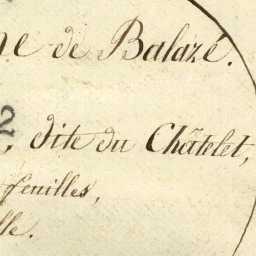 ne de Balazé.
2, dite du Châtelet,
feuilles,
lle.